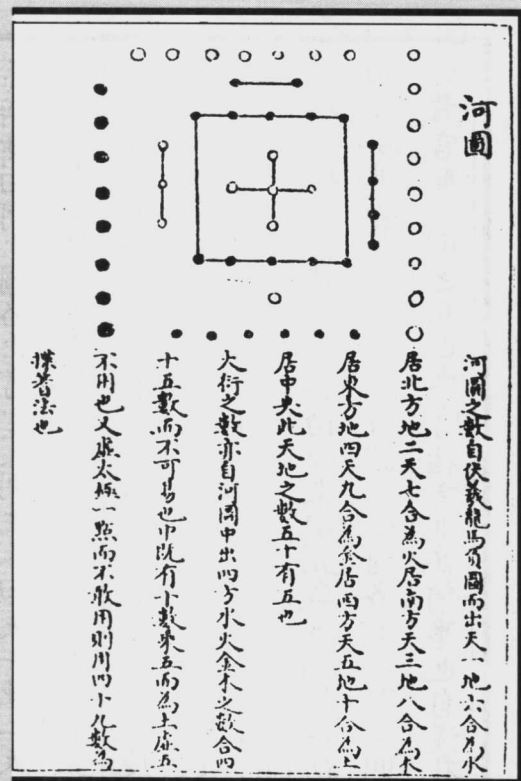 河圖
河圖之數自伏羲龍馬負圖而出天一地六合為水
居北方地二天七合為火居南方天三地八合為木
居東方地四天九合為金居西方天五地十合為土
居中央此天地之數五十有五也
大衍之數亦自河圖中出四方水火金木之數合四
十五數而不可易也中既有十數乘五而為土虛五
不用也又虛太極一點而不敢用則用四十九數為
揲蓍法也